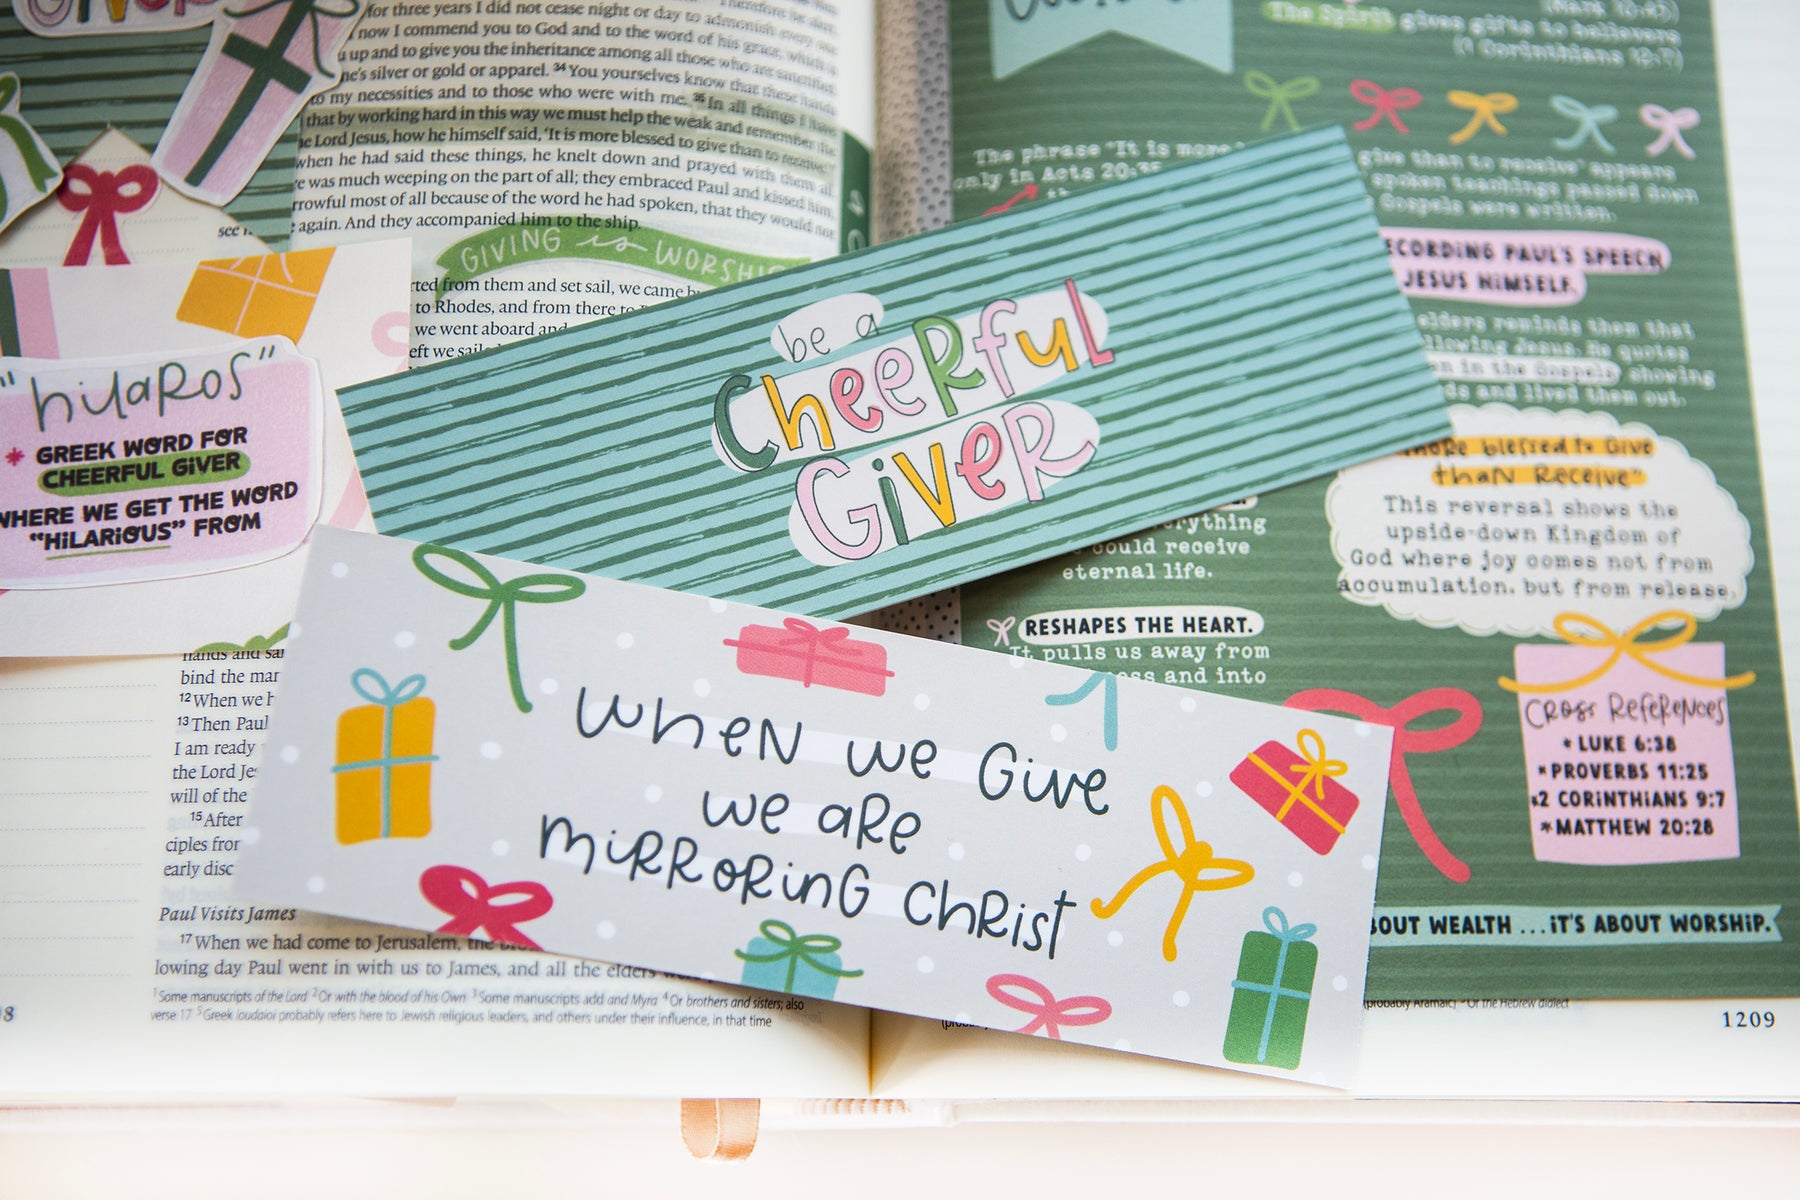 for three years I did not cease night or day to admonish every one
now I commend you to God and to the word of his grace, which is
up and to give you the inheritance among all those who are sanctified.
silver or gold or apparel. 34 You yourselves know that these hands
to my necessities and to those who were with me. 35 In all things I have
that by working hard in this way we must help the weak and remember the
Lord Jesus, how he himself said, ‘It is more blessed to give than to receive.’
when he had said these things, he knelt down and prayed with them all.
was much weeping on the part of all; they embraced Paul and kissed him,
most of all because of the word he had spoken, that they would not
again. And they accompanied him to the ship.
see
GIVING is WORSHIP
from them and set sail, we came
to Rhodes, and from there to
we went aboard and
"hilaros"
* GREEK WORD FOR
CHEERFUL GIVER
WHERE WE GET THE WORD
“HILARIOUS” FROM
be a
Cheerful
Giver
When we Give
we are
mirroring Christ
hands and
bind the
12 When we
13 Then Paul
I am ready
the Lord
will of the
15 After
early
Paul Visits James
17 When we had come to Jerusalem, the
lowing day Paul went in with us to James, and all the elders
1 Some manuscripts of the Lord 2 Or with the blood of his Own 3 Some manuscripts add and Myra 4 Or brothers and sisters; also
verse 17 5 Greek Ioudaioi probably refers here to Jewish religious leaders, and others under their influence, in that time
(Mark 10:45)
The Spirit gives gifts to believers
(1 Corinthians 12:7)
The phrase "It is more
give than to receive" appears
only in Acts 20:35
spoken teachings passed down
Gospels were written.
RECORDING PAUL'S SPEECH
JESUS HIMSELF.
elders reminds them that
following Jesus. He quotes
in the Gospels showing
and lived them out.
more blessed to Give
than Receive"
This reversal shows the
upside-down Kingdom of
God where joy comes not from
accumulation, but from release.
could receive
eternal life.
RESHAPES THE HEART.
It pulls us away from
and into
Cross References
* LUKE 6:38
* PROVERBS 11:25
*2 CORINTHIANS 9:7
* MATTHEW 20:28
ABOUT WEALTH ...IT'S ABOUT WORSHIP.
(probably Aramaic) Or the Hebrew dialect
1209